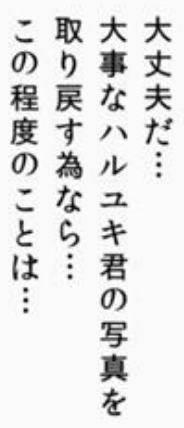 大丈夫だ…
大事なハルユキ君の写真を
取り戻す為なら…
この程度のことは…